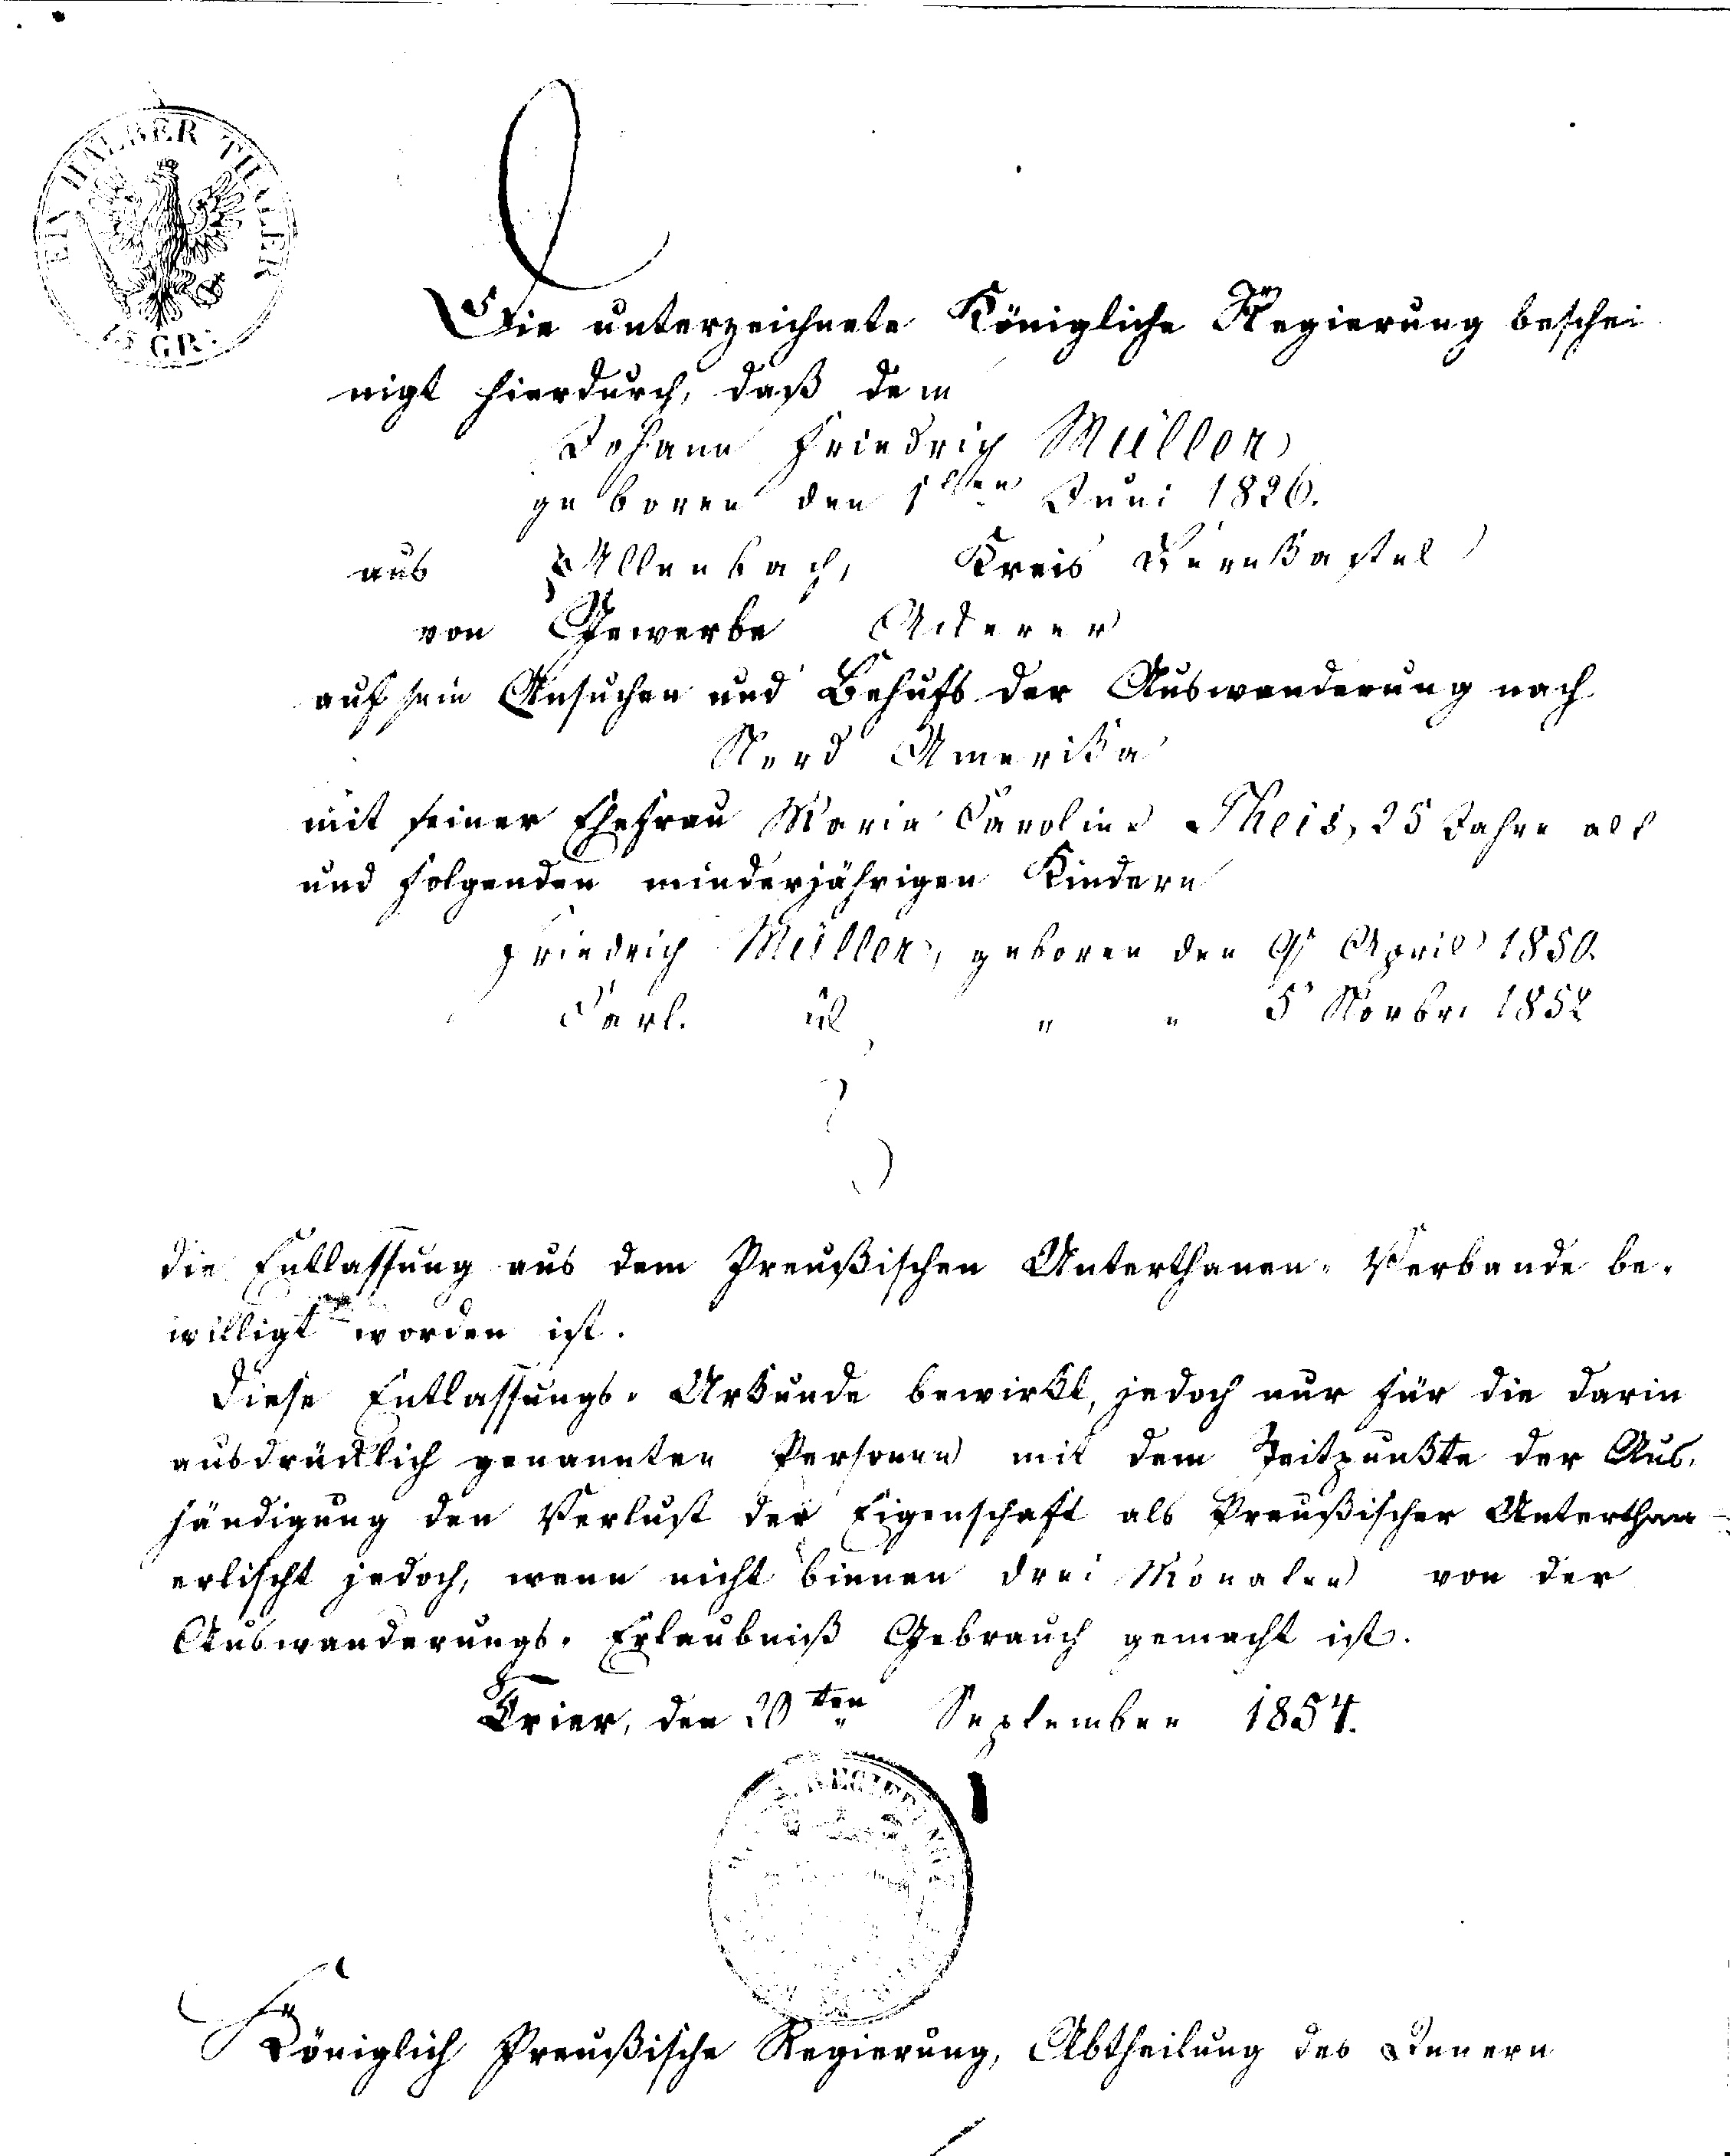 EIN HALBER THALER
15 GR:
Die unterzeichnete Königliche Regierung beschei
nigt hierdurch, daß dem
Johann Friedrich Müller
geboren den 1sten Juni 1826.
aus Allenbach, Kreis Bernkastel
von Gewerbe Ackerer
auf sein Ansuchen und Behufs der Auswanderung nach
Nord Amerika
mit seiner Ehefrau Maria Caroline Theis, 25 Jahre alt
und folgenden minderjährigen Kindern
Friedrich Müller, geboren den 9t April 1850.
Carl. id " " 5t Novbr. 1852
die Entlassung aus dem Preußischen Unterthanen-Verbande be-
willigt worden ist.
Diese Entlassungs-Urkunde bewirkt, jedoch nur für die darin
ausdrücklich genannten Personen mit dem Zeitpunkte der Aus-
händigung den Verlust der Eigenschaft als Preußischer Unterthan
erlischt jedoch, wenn nicht binnen drei Monaten von der
Auswanderungs-Erlaubniß Gebrauch gemacht ist.
Trier, den ten September 1854.
REGIERUNG
Königlich Preußische Regierung, Abtheilung des Innern